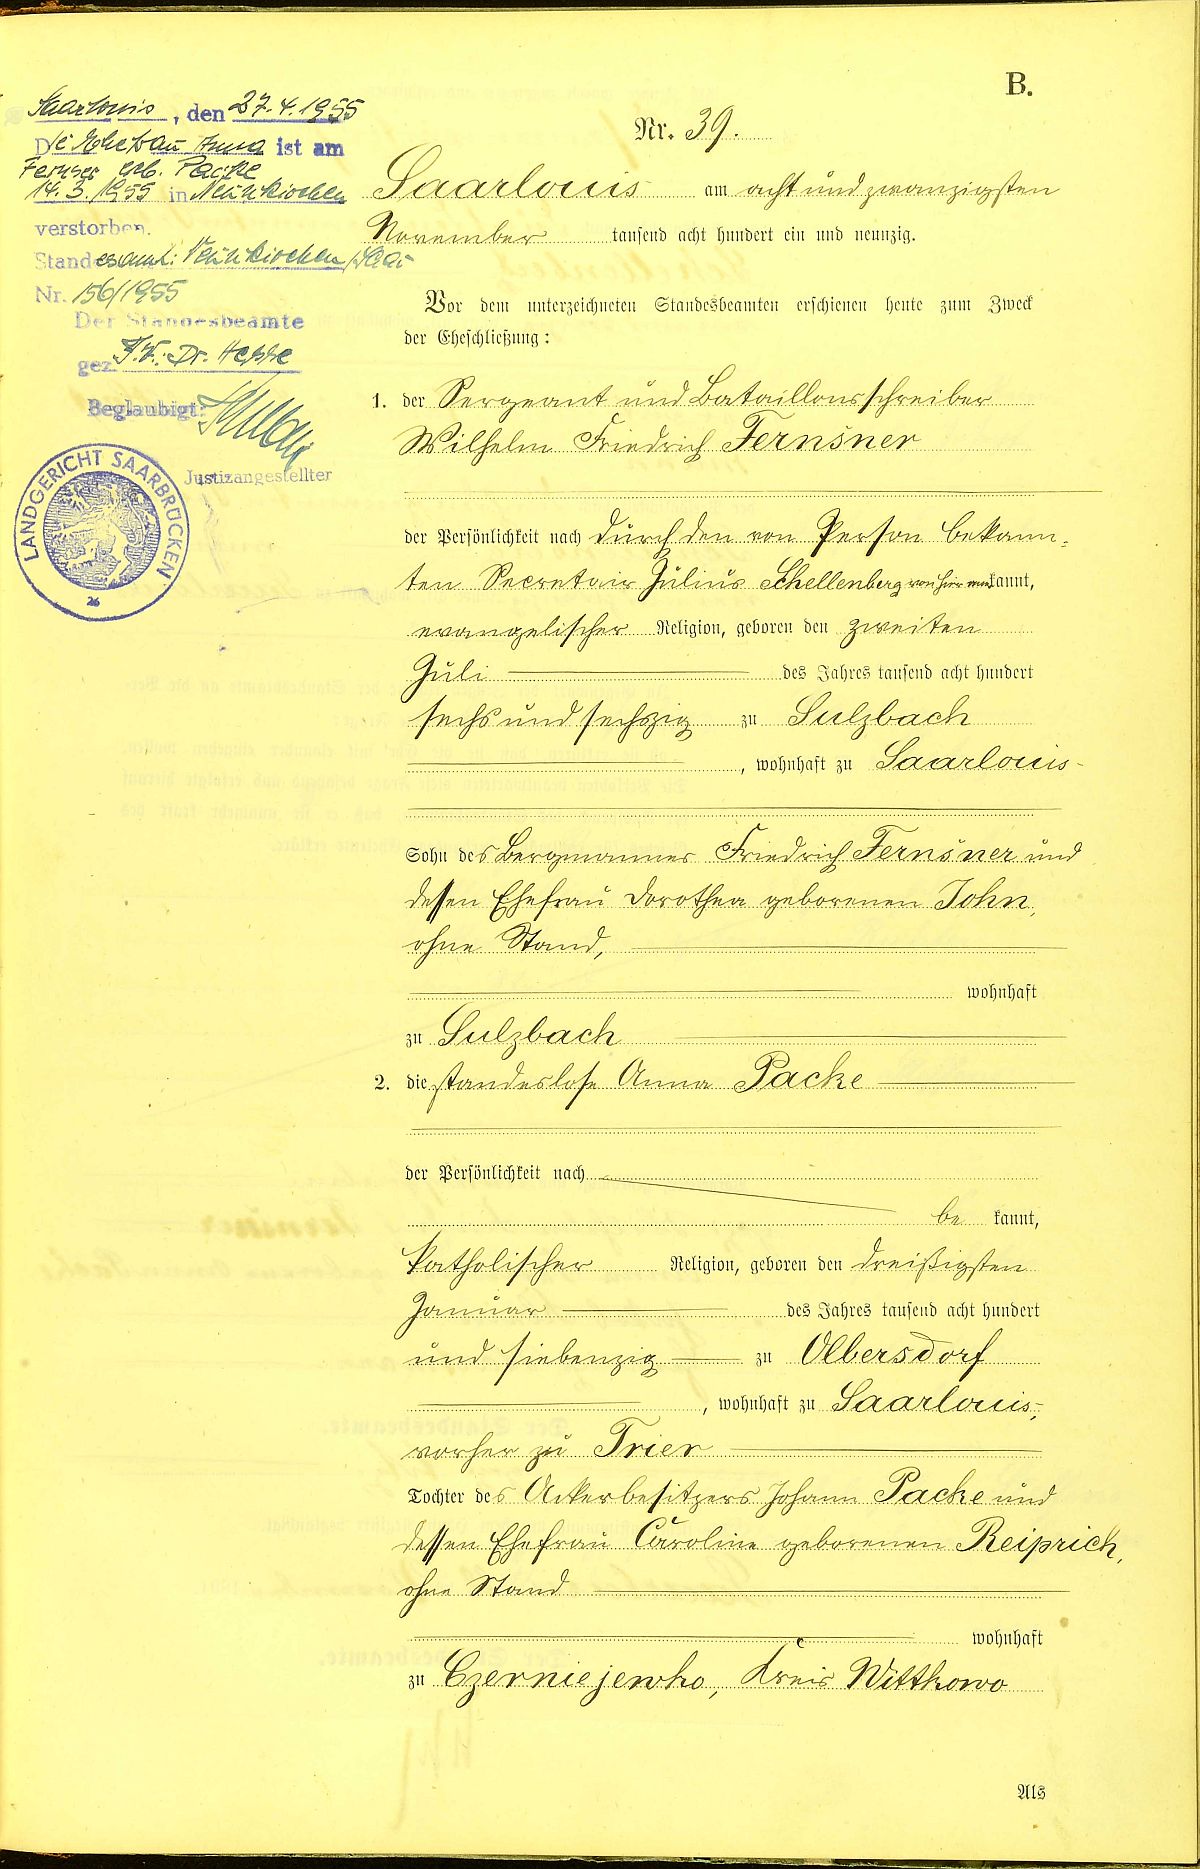 B.
Nr. 39.
Saarlouis, den 27.4.1955
Die Ehefrau Anna ist am
Fernsner geb. Packe
14.3.1955 in Neunkirchen
verstorben.
Standesamt: Neunkirchen/Saar
Nr. 156/1955
Der Standesbeamte
gez. I.V.: Dr.
Beglaubigt:
Justizangestellter
LANDGERICHT SAARBRÜCKEN
26
Saarlouis am acht und zwanzigsten
November tausend acht hundert ein und neunzig.
Vor dem unterzeichneten Standesbeamten erschienen heute zum Zweck
der Eheschließung:
1. der Sergeant und Bataillonsschreiber
Wilhelm Friedrich Fernsner
der Persönlichkeit nach durch den von Person bekann-
ten Secretair Julius Schellenberg von hier anerkannt,
evangelischer Religion, geboren den zweiten
Juli des Jahres tausend acht hundert
sechs und sechszig zu Sulzbach
, wohnhaft zu Saarlouis
Sohn des Bergmannes Friedrich Fernsner und
dessen Ehefrau Dorothea geborenen John,
ohne Stand,
wohnhaft
zu Sulzbach
2. die standeslose Anna Packe
der Persönlichkeit nach
be kannt,
katholischer Religion, geboren den dreißigsten
Januar des Jahres tausend acht hundert
und siebenzig zu Olbersdorf
, wohnhaft zu Saarlouis,
vorher zu Trier
Tochter des Ackerbesitzers Johann Packe und
dessen Ehefrau Caroline geborenen Reiprich,
ohne Stand
wohnhaft
zu Czerniejewko, Kreis Wittkowo
Als